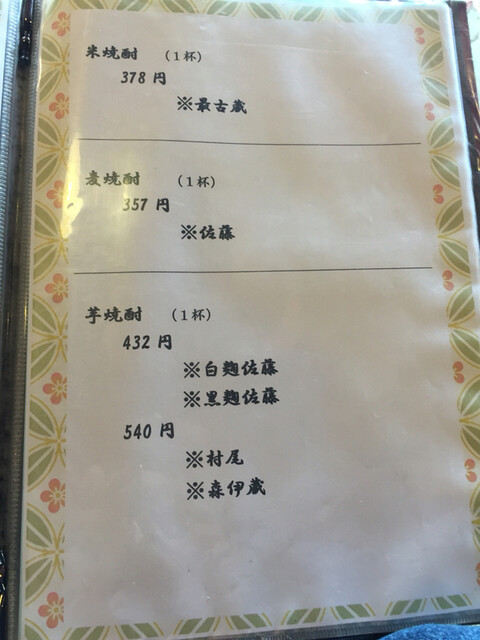 米焼酎 (1杯)
378 円
※最古蔵
麦焼酎 (1杯)
357 円
※佐藤
芋焼酎 (1杯)
432 円
※白麹佐藤
※黒麹佐藤
540 円
※村尾
※森伊蔵